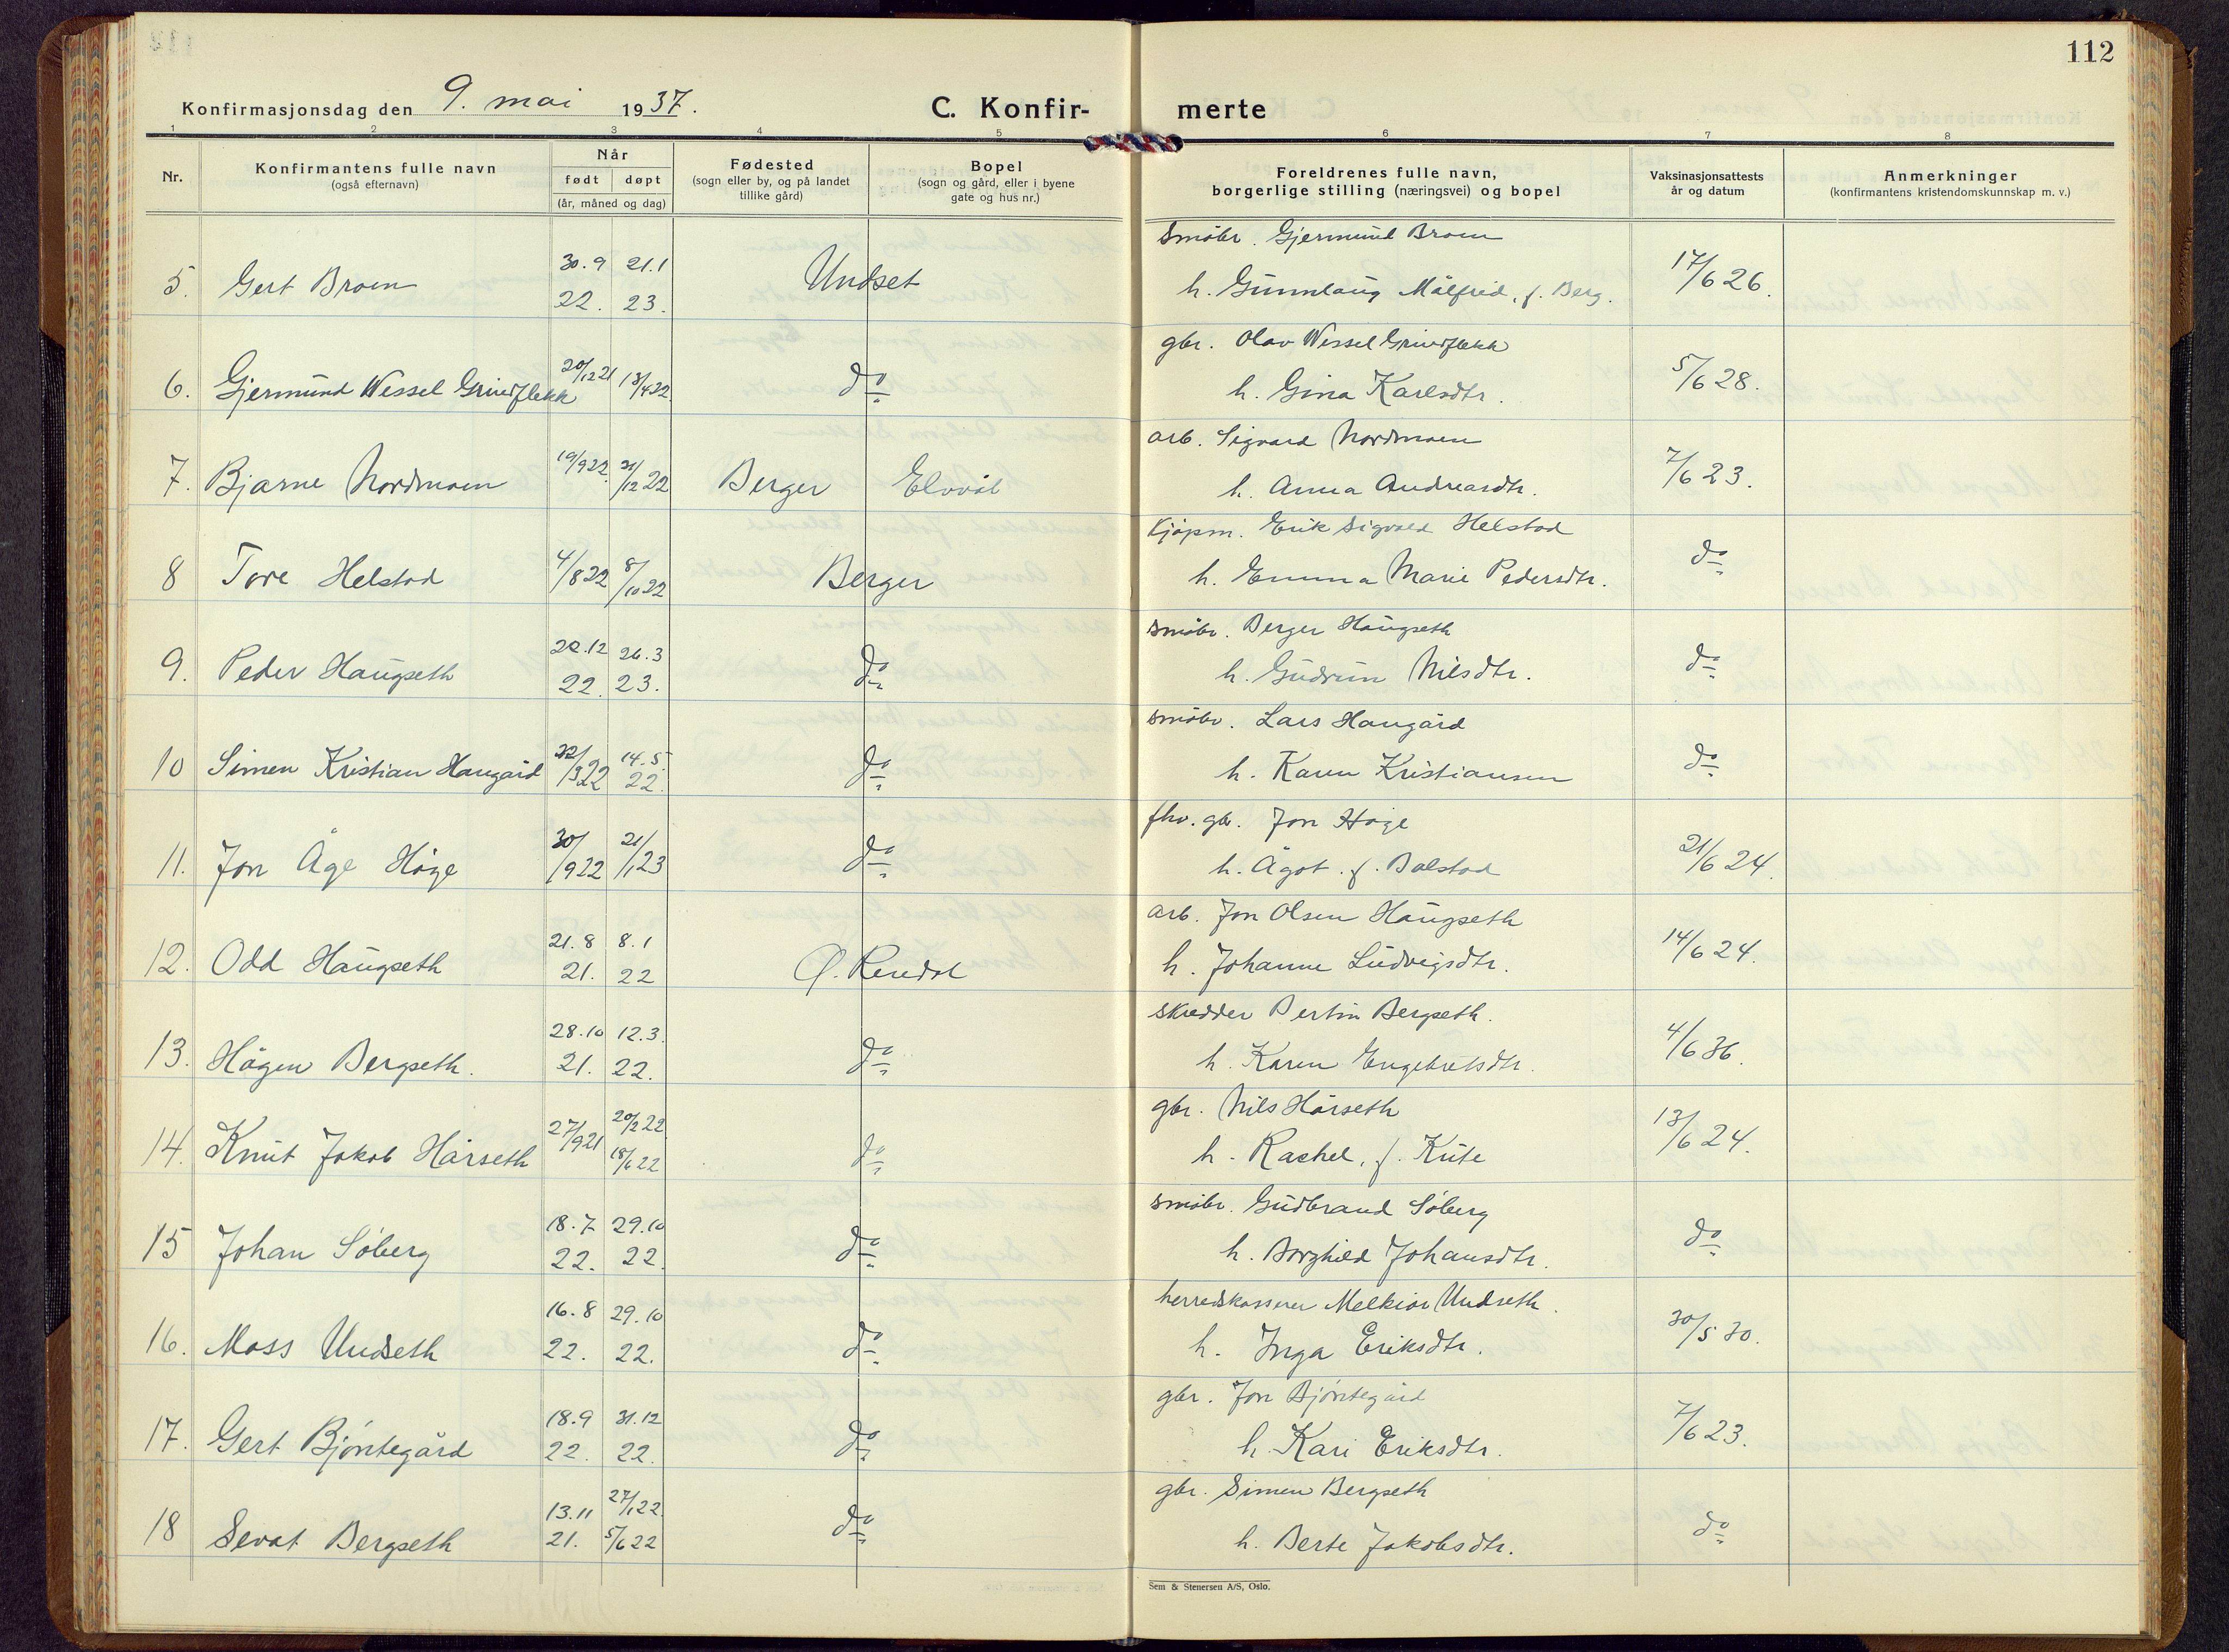 112
Konfirmasjonsdag den 9. mai 1937.
C. Konfir- merte
1 2 3 4 5 6 7 8
Nr.
Konfirmantens fulle navn
(også efternavn)
Når
født døpt
(år, måned og dag)
Fødested
(sogn eller by, og på landet
tillike gård)
Bopel
(sogn og gård, eller i byene
gate og hus nr.)
Foreldrenes fulle navn,
borgerlige stilling (næringsvei) og bopel
Vaksinasjonsattests
år og datum
Anmerkninger
(konfirmantens kristendomskunnskap m. v.)
småbr. Gjermund Broen
30.9 21.1
5. Gert Broen Undset 17/6 26.
22. 23. h. Gunnlaug Målfrid, f. Berg.
gbr. Olav Wessel Grindflekk
20/12 21 13/4 22
6. Gjermund Wessel Grindflekk do 5/6 28.
h. Gina Karlsdtr.
arb. Sigvard Nordmoen
7. Bjarne Nordmoen 19/9 22. 21/12 22 Berger Elvål 7/6 23.
h. Anna Andreasdtr.
Kjøpm. Erik Sigvald Helstad
8 Tore Helstad 4/8 22 8/10 22 Berger do
h. Emma Marie Pedersdtr.
småbr. Berger Haugseth
22.12 26.3
9. Peder Haugseth do do
22. 23. h. Gudrun Nilsdtr.
småbr. Lars Haugård
10 Simen Kristian Haugård 22/3 22 14.5. 22. do do
h. Karen Kristiansen
fhv. gbr. Jon Høye
11. Jon Åge Høye 30/9 22 21/1 23 do 21/6 24.
h. Ågot. f. Balstad
arb. Jon Olsen Haugseth
21.8 8.1
12. Odd Haugseth Ø. Rendal 14/6 24.
21. 22 h. Johanne Ludvigsdtr.
skredder Bertin Bergseth.
28.10 12.3.
13. Hågen Bergseth. do 4/6 36.
21. 22. h. Karen Engebretsdtr.
gbr. Nils Hårseth
27/9 21 20/2 22
14. Knut Jakob Hårseth do 13/6 24.
18/6 22 h. Rachel, f. Kute
småbr. Gudbrand Søberg
18.7 29.10
15 Johan Søberg do do
22. 22. h. Borghild Johansdtr.
herredskasserer Melkior Undseth.
16.8 29.10
16. Moss Undseth do 30/5 30.
22. 22. h. Inga Eriksdtr.
gbr. Jon Bjøntegård
18.9 31.12
17. Gert Bjøntegård do 7/6 23.
22. 22. h. Kari Eriksdtr.
gbr. Simen Bergseth
13.11 27/1 22.
18 Sevat Bergseth do do
21. 5/6 22 h. Berte Jakobsdtr.
Sem & Stenersen A/S, Oslo.